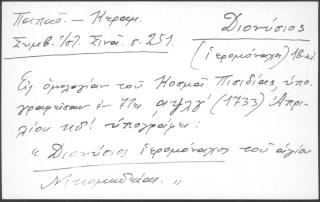 Παπαδ. - Κεραμ.
Συμβ. ἱστ. Σινᾶ. σ. 251.
Διονύσιος
(ἱερομόναχος) 18 αἰ.
Εἰς ὁμολογίαν τοῦ Κοσμᾶ Πισιδίας, ὑπο-
γραφεῖσαν ἐν ἔτει αψλγ (1733) Ἀπρι-
λίου κδ! ὑπογράφει:
" Διονύσιος ἱερομόναχος τοῦ ἁγίου
Νικομηδείας. "